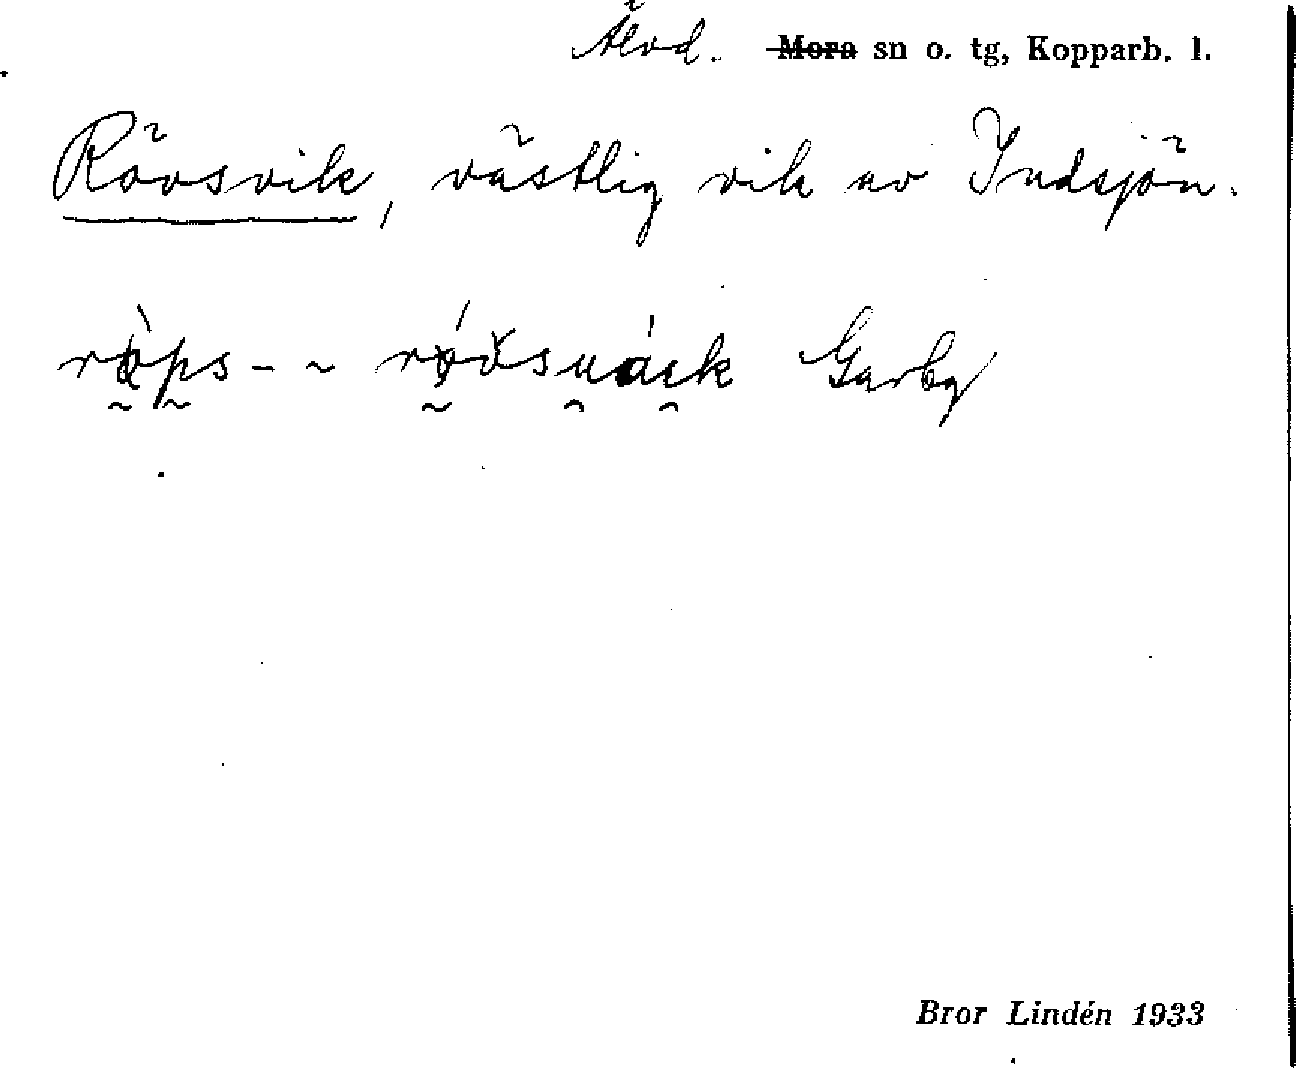 Älvd. ~~Mora~~ sn o. tg, Kopparb. l.
Rövsvik, västlig vik av Indsjön.
Garby
Bror Lindén 1933